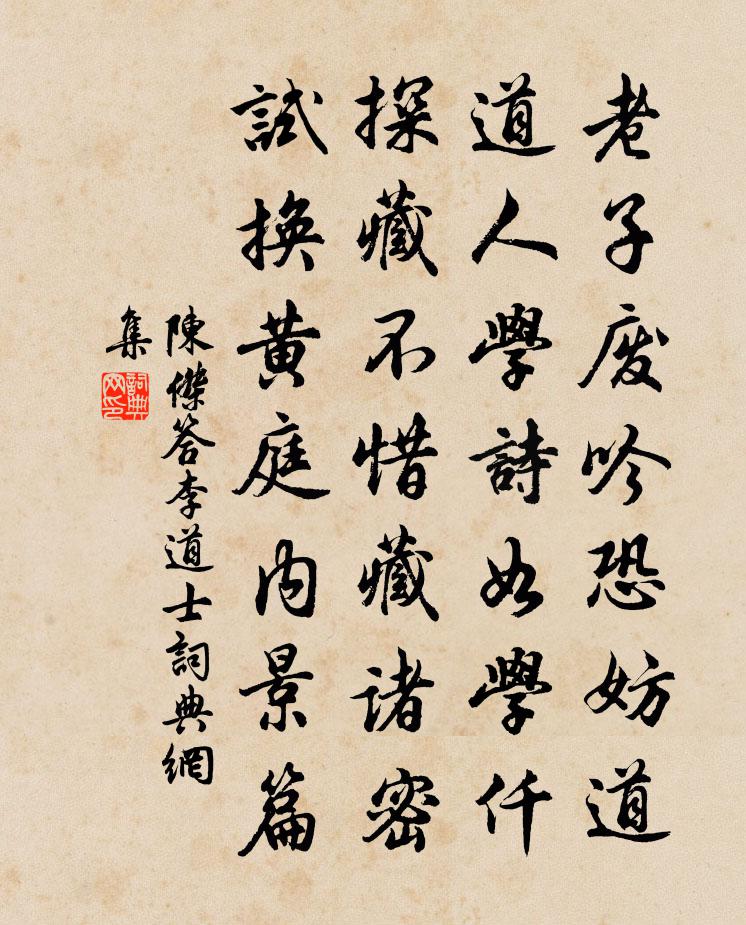 老子废吟恐妨道
道人學詩如學仟
探藏不惜藏诸密
試換黄庭内景篇
陳傑答李道士詞典網
集
詞典
网印